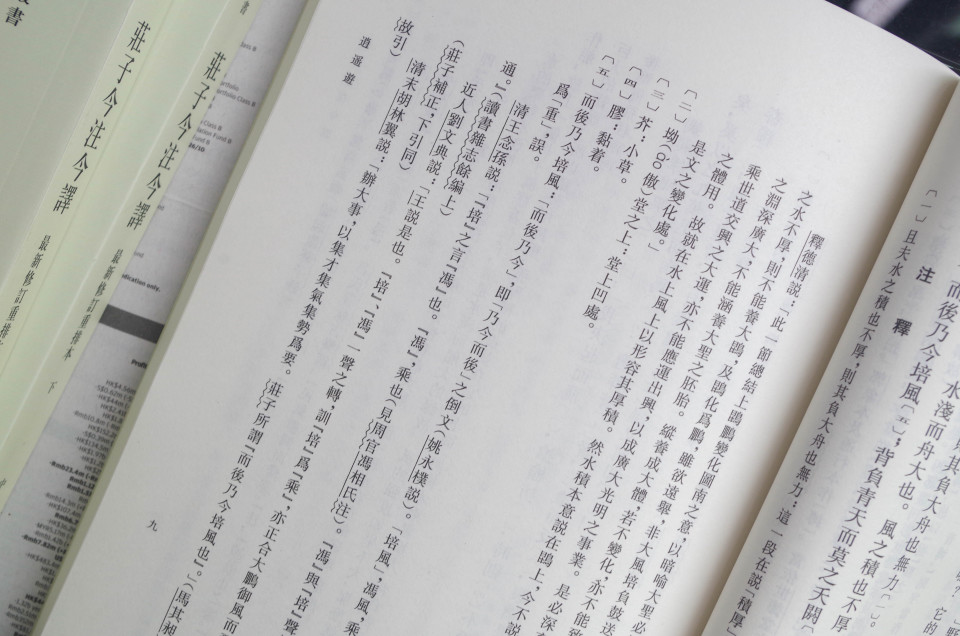 而後乃今培風〔五〕;背負青天而莫之夭閼
水淺而舟大也。風之積也不厚
則其負大舟也無力〔一〕。
注釋
〔一〕且夫水之積也不厚,則其負大舟也無力:這一段在説「積厚」
之水不厚,則不能養大鵾,及鵾化爲鵬,雖欲遠舉,非大風培負鼓送
釋德清説:「此一節總結上鵾鵬變化圖南之意,以暗喻大聖必
之淵深廣大,不能涵養大聖之胚胎。縱養成大體,若不變化,亦不能致
乘世道交興之大運,亦不能應運出興,以成廣大光明之事業。是必深
之體用。故就在水上風上以形容其厚積。然水積本意説在鵾上,今不説
是文之變化處。」
〔二〕坳(ào 傲)堂之上:堂上凹處。
〔三〕芥:小草。
〔四〕膠:黏着。
〔五〕而後乃今培風:「而後乃今」,即「乃今而後」之倒文(姚永樸説)。「培風」,馮風,乘
爲「重」,誤。
清王念孫説:「『培』之言『馮』也。『馮』,乘也(見周官馮相氏注)。『馮』與『培』聲
通。』(讀書雜志餘編上)
近人劉文典説:「王説是也。『培』、『馮』一聲之轉,訓『培』爲『乘』,亦正合大鵬御風而
(莊子補正,下引同)
清末胡林翼説:「辦大事,以集才集氣集勢爲要。莊子所謂『而後乃今培風也』。」(馬其昶
故引)
逍遥遊
九
莊子今注今譯
最新修訂重排本
莊子今注今譯
最新修訂重排本
下